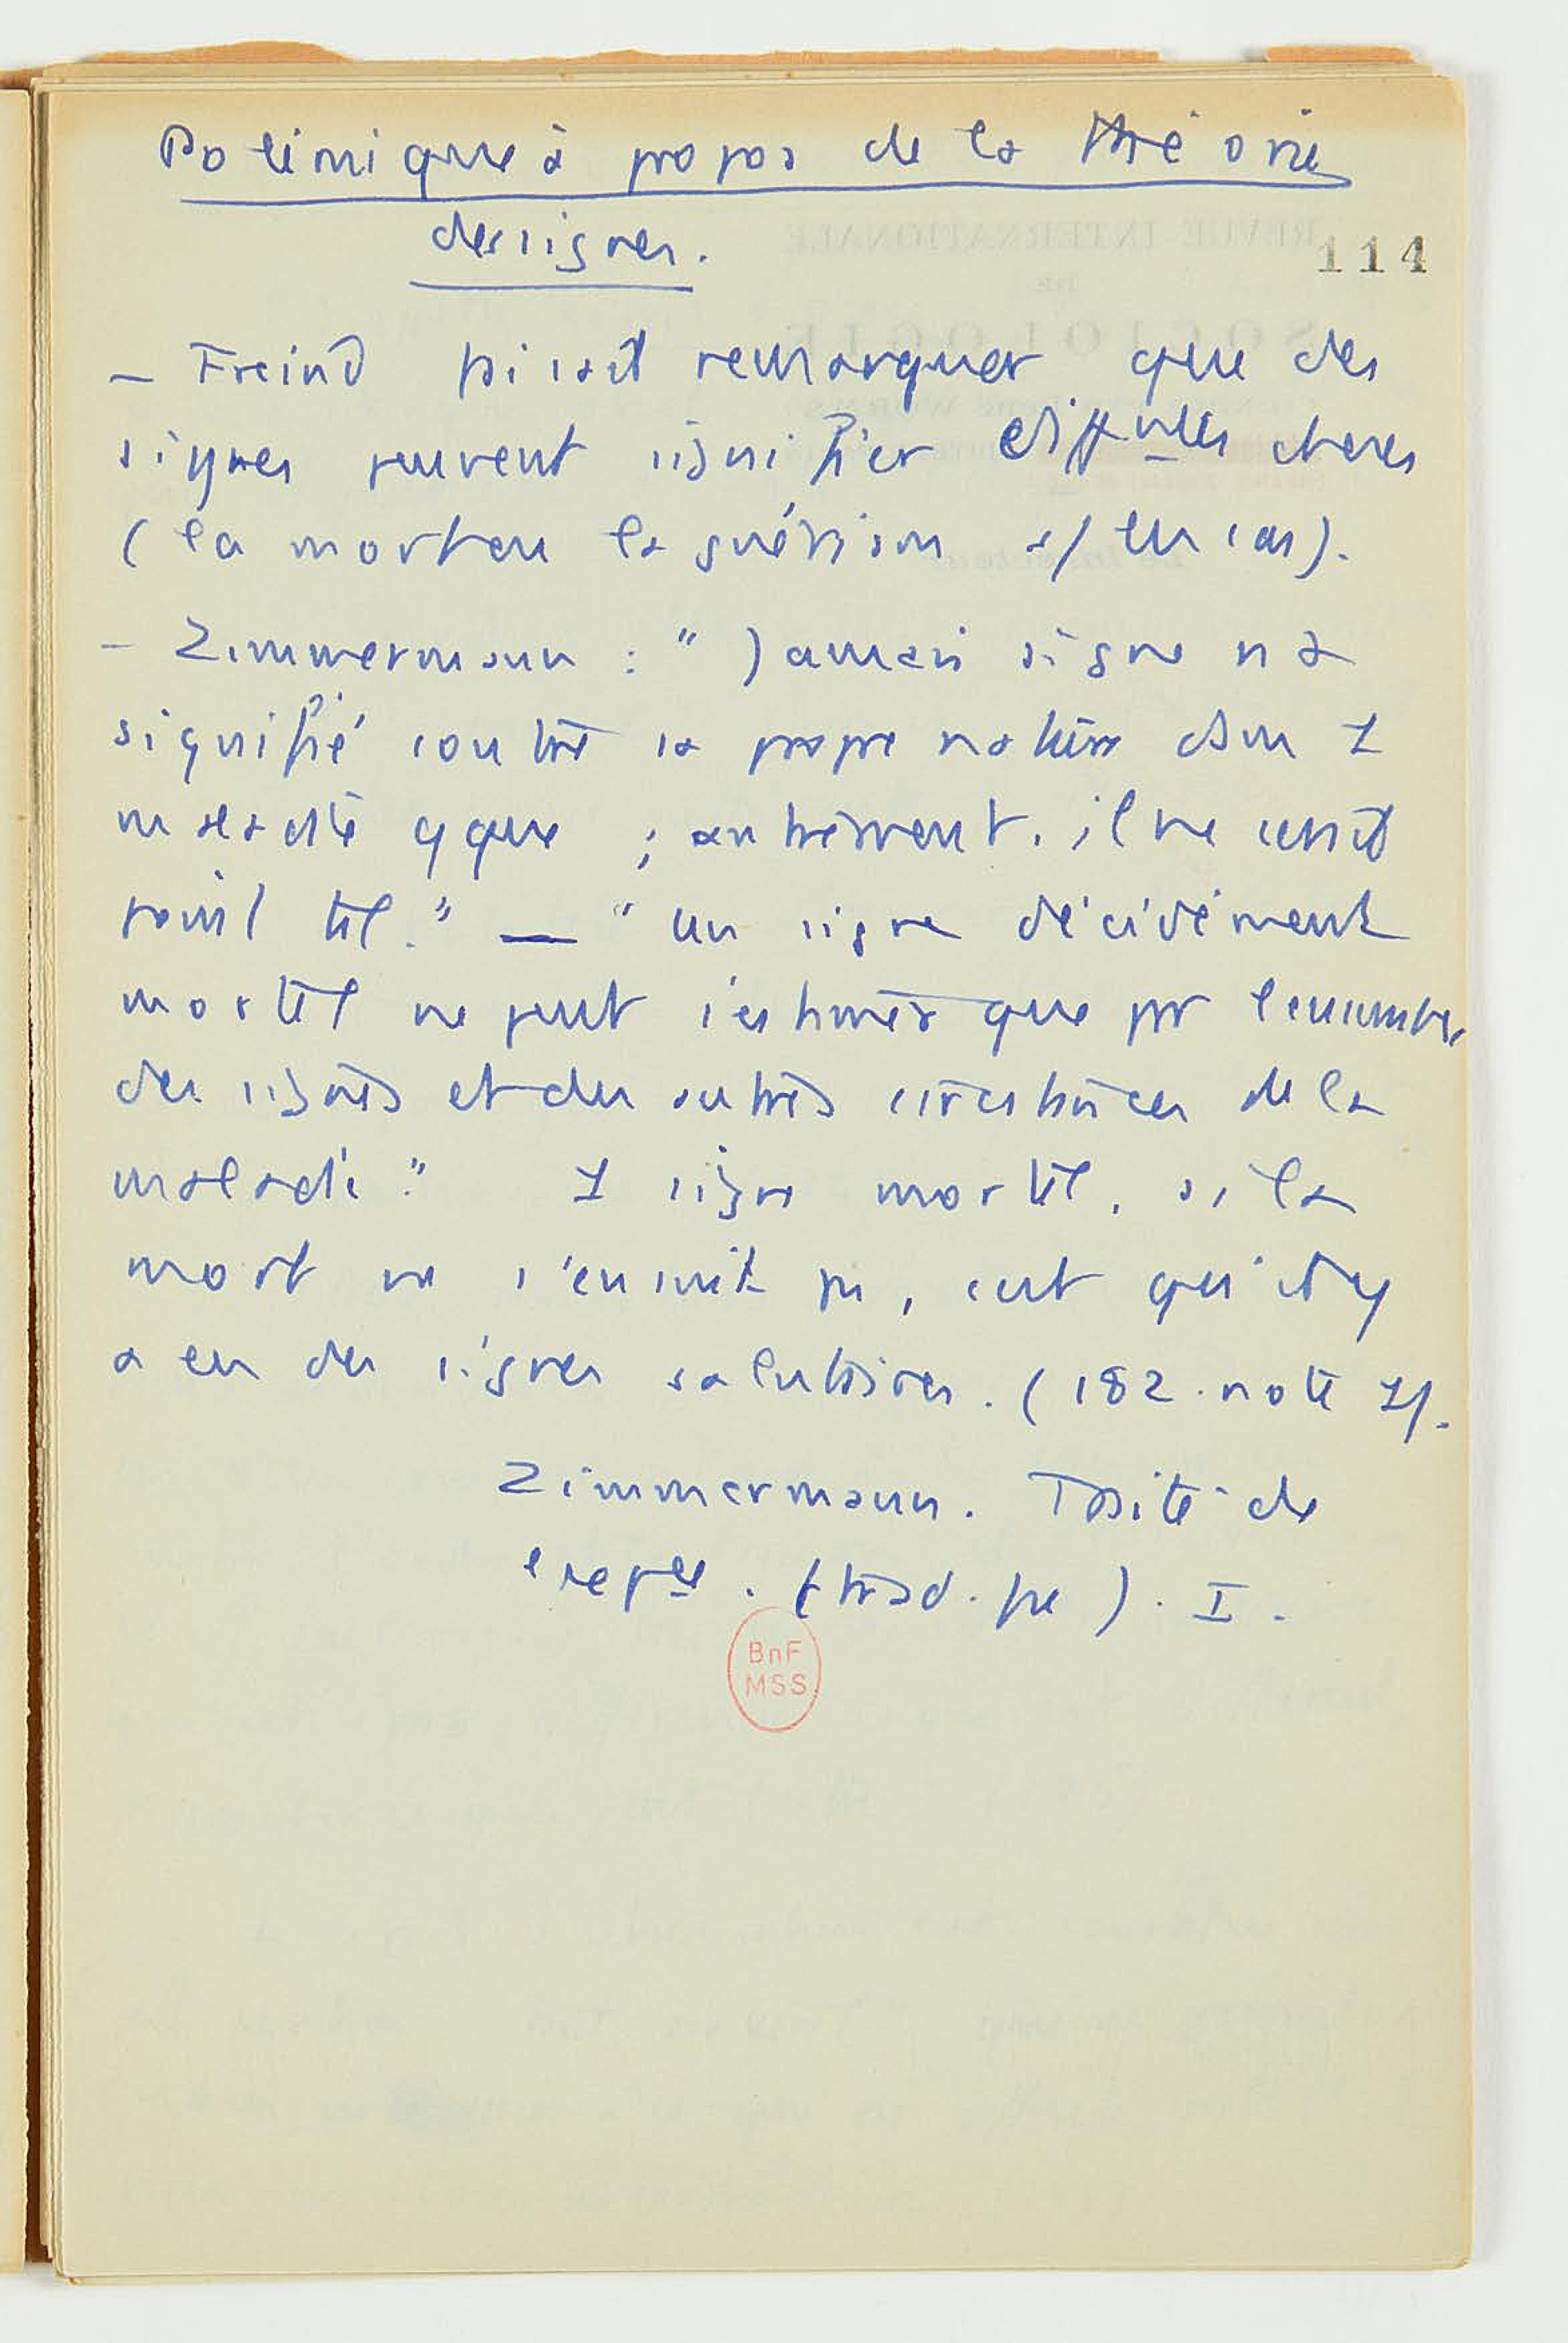 Polémique à propos de la théorie
des signes.
114
- Freind faisait remarquer que des
signes peuvent signifier diffntes choses
(la mort ou la guérison s/ les cas).
- Zimmermann : " Jamais signe n'a
signifié contre sa propre nature dans 1
maladie qque ; autrement, il ne serait
point tel." — " Un signe décidément
mortel ne peut s'estimer que par l'ensemble
des signes et des autres circonstances de la
maladie." 1 signe mortel, si la
mort ne s'ensuit pas, c'est qu'il y
a eu des signes salutaires. (182. note 1).
Zimmermann. Traité de
l'expce. (trad. fse). I.
BnF
MSS